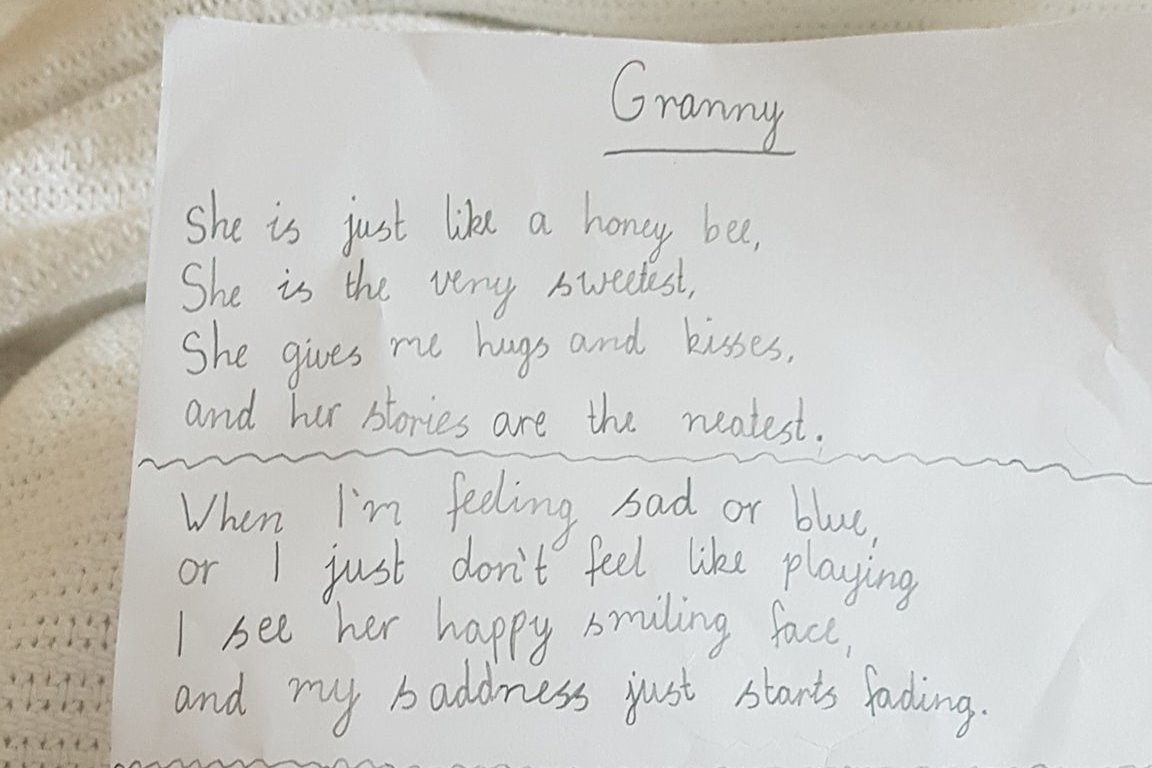 Granny
She is just like a honey bee,
She is the very sweetest,
She gives me hugs and kisses,
and her stories are the neatest.
When I'm feeling sad or blue,
or I just don't feel like playing
I see her happy smiling face,
and my saddness just starts fading.